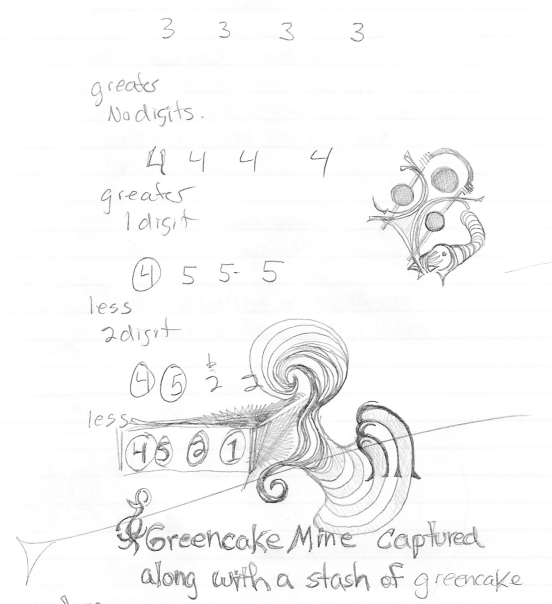 3 3 3 3
greater
No digits.
4 4 4 4
greater
1 digit
4 5 5 5
less
2 digit
4 5 2 2
less
4 5 2 1
Greencake Mine Captured
along with a stash of greencake